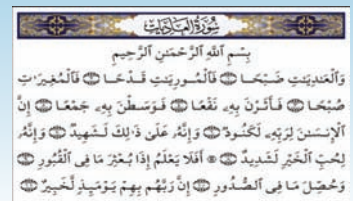 سُورَةُ العَادِيَات
بِسْمِ اللَّهِ الرَّحْمَٰنِ الرَّحِيمِ
وَالْعَٰدِيَٰتِ ضَبْحًا ۝ فَالْمُورِيَٰتِ قَدْحًا ۝ فَالْمُغِيرَٰتِ
صُبْحًا ۝ فَأَثَرْنَ بِهِۦ نَقْعًا ۝ فَوَسَطْنَ بِهِۦ جَمْعًا ۝ إِنَّ
الْإِنسَٰنَ لِرَبِّهِۦ لَكَنُودٌ ۝ وَإِنَّهُۥ عَلَىٰ ذَٰلِكَ لَشَهِيدٌ ۝ وَإِنَّهُۥ
لِحُبِّ الْخَيْرِ لَشَدِيدٌ ۝ ۞ أَفَلَا يَعْلَمُ إِذَا بُعْثِرَ مَا فِى الْقُبُورِ ۝
وَحُصِّلَ مَا فِى الصُّدُورِ ۝ إِنَّ رَبَّهُم بِهِمْ يَوْمَئِذٍ لَّخَبِيرٌ ۝